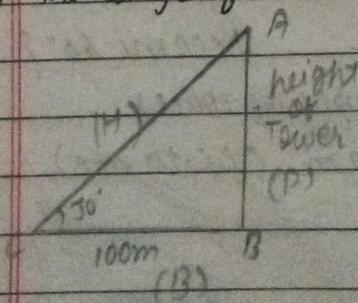 A
height
of
Tower
(P)
(H)
30°
C
100m
B
(B)